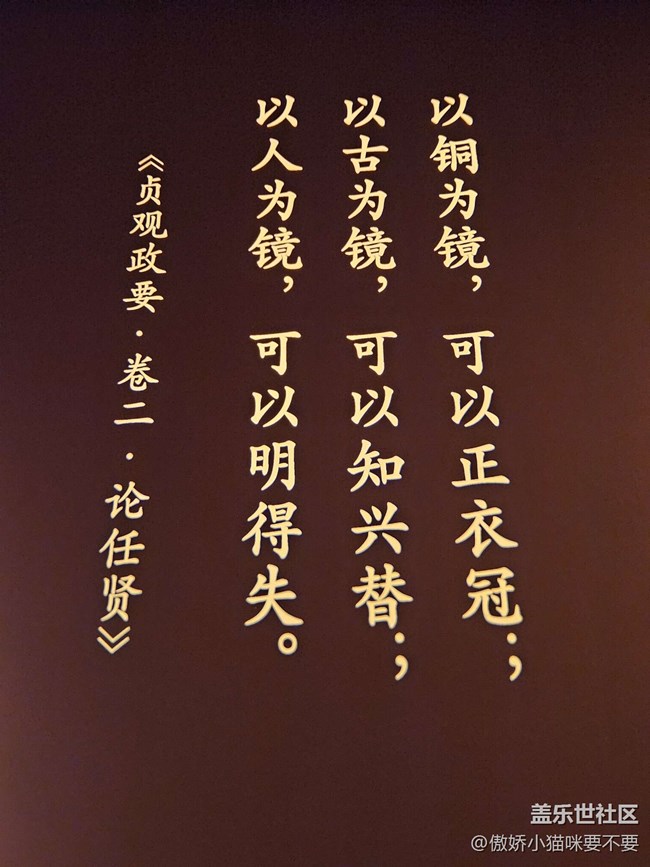 以铜为镜，可以正衣冠；
以古为镜，可以知兴替；
以人为镜，可以明得失。
《贞观政要·卷二·论任贤》
盖乐世社区
@傲娇小猫咪要不要